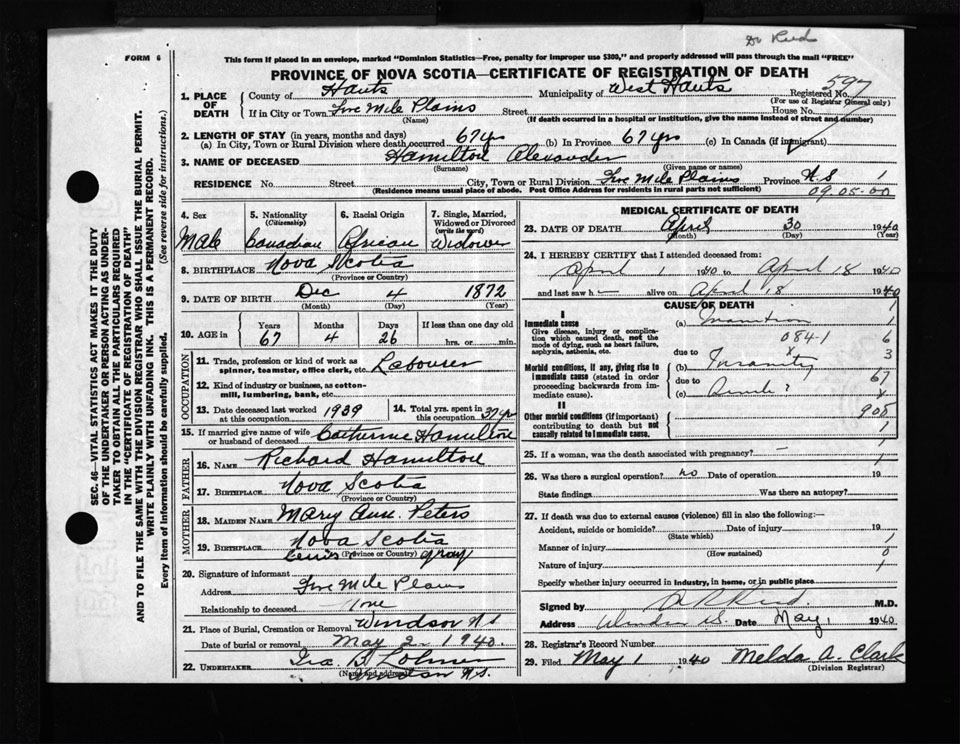 Dr Reid
FORM 6
This form if placed in an envelope, marked "Dominion Statistics—Free, penalty for improper use $300," and properly addressed will pass through the mail "FREE"
PROVINCE OF NOVA SCOTIA—CERTIFICATE OF REGISTRATION OF DEATH
597
1. PLACE OF DEATH
County of Hants Municipality of West Hants Registered No.
(For use of Registrar General only)
If in City or Town Five Mile Plains Street House No.
(Name) (If death occurred in a hospital or institution, give the name instead of street and number)
2. LENGTH OF STAY (in years, months and days)
(a) In City, Town or Rural Division where death occurred 67 yrs (b) In Province 67 yrs (c) In Canada (if immigrant)
3. NAME OF DECEASED Hamilton Alexander
(Surname) (Given name or names)
RESIDENCE No. Street City, Town or Rural Division Five Mile Plains Province N S 1
(Residence means usual place of abode. Post Office Address for residents in rural parts not sufficient) 09.05-00
4. Sex Male
5. Nationality (Citizenship) Canadian
6. Racial Origin African
7. Single, Married, Widowed or Divorced (write the word) Widower
8. BIRTHPLACE Nova Scotia
(Province or Country)
9. DATE OF BIRTH Dec 4 1872
(Month) (Day) (Year)
10. AGE in Years 67 Months 4 Days 26 If less than one day old hrs. or min.
OCCUPATION
11. Trade, profession or kind of work as spinner, teamster, office clerk, etc. Labourer
12. Kind of industry or business, as cotton-mill, lumbering, bank, etc.
13. Date deceased last worked at this occupation 1939
14. Total yrs. spent in this occupation
15. If married give name of wife or husband of deceased Catherine Hamilton
FATHER
16. NAME Richard Hamilton
17. BIRTHPLACE Nova Scotia
(Province or Country)
MOTHER
18. MAIDEN NAME Mary Ann. Peters
19. BIRTHPLACE Nova Scotia
(Province or Country)
20. Signature of informant Gray
Address Five Mile Plains
Relationship to deceased None
21. Place of Burial, Cremation or Removal Windsor N S
Date of burial or removal May 2 1940
22. UNDERTAKER Ira B
(Name and address) Windson N.S.
MEDICAL CERTIFICATE OF DEATH
23. DATE OF DEATH April 30 1940
(Month) (Day) (Year)
24. I HEREBY CERTIFY that I attended deceased from:
April 1 1940 to April 18 1940
and last saw h alive on April 18 1940
CAUSE OF DEATH
I
Immediate cause (a) Inanition
Give disease, injury or complication which caused death, not the mode of dying, such as heart failure, asphyxia, asthenia, etc.
084.1
due to
Morbid conditions, if any, giving rise to immediate cause (stated in order proceeding backwards from immediate cause). (b) Insanity
due to
(c)
II
Other morbid conditions (if important) contributing to death but not causally related to immediate cause.
908
25. If a woman, was the death associated with pregnancy? —
26. Was there a surgical operation? no Date of operation 19
State findings Was there an autopsy?
27. If death was due to external causes (violence) fill in also the following:—
Accident, suicide or homicide? Date of injury 19
(State which)
Manner of injury
(How sustained)
Nature of injury
Specify whether injury occurred in industry, in home, or in public place
Signed by Reid M.D.
Address Windsor Date May 1 1940
28. Registrar's Record Number
29. Filed May 1 1940 Melda A. Clark
(Division Registrar)
SEC. 46—VITAL STATISTICS ACT MAKES IT THE DUTY
OF THE UNDERTAKER OR PERSON ACTING AS UNDER-
TAKER TO OBTAIN ALL THE PARTICULARS REQUIRED
IN THE "CERTIFICATE OF REGISTRATION OF DEATH"
AND TO FILE THE SAME WITH THE DIVISION REGISTRAR WHO SHALL ISSUE THE BURIAL PERMIT.
WRITE PLAINLY WITH UNFADING INK. THIS IS A PERMANENT RECORD.
Every item of information should be carefully supplied. (See reverse side for instructions.)